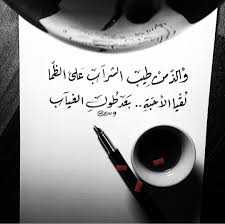 وألذّ من طيب الشراب على الظما
لقيا الأحبة .. بعد طول الغياب